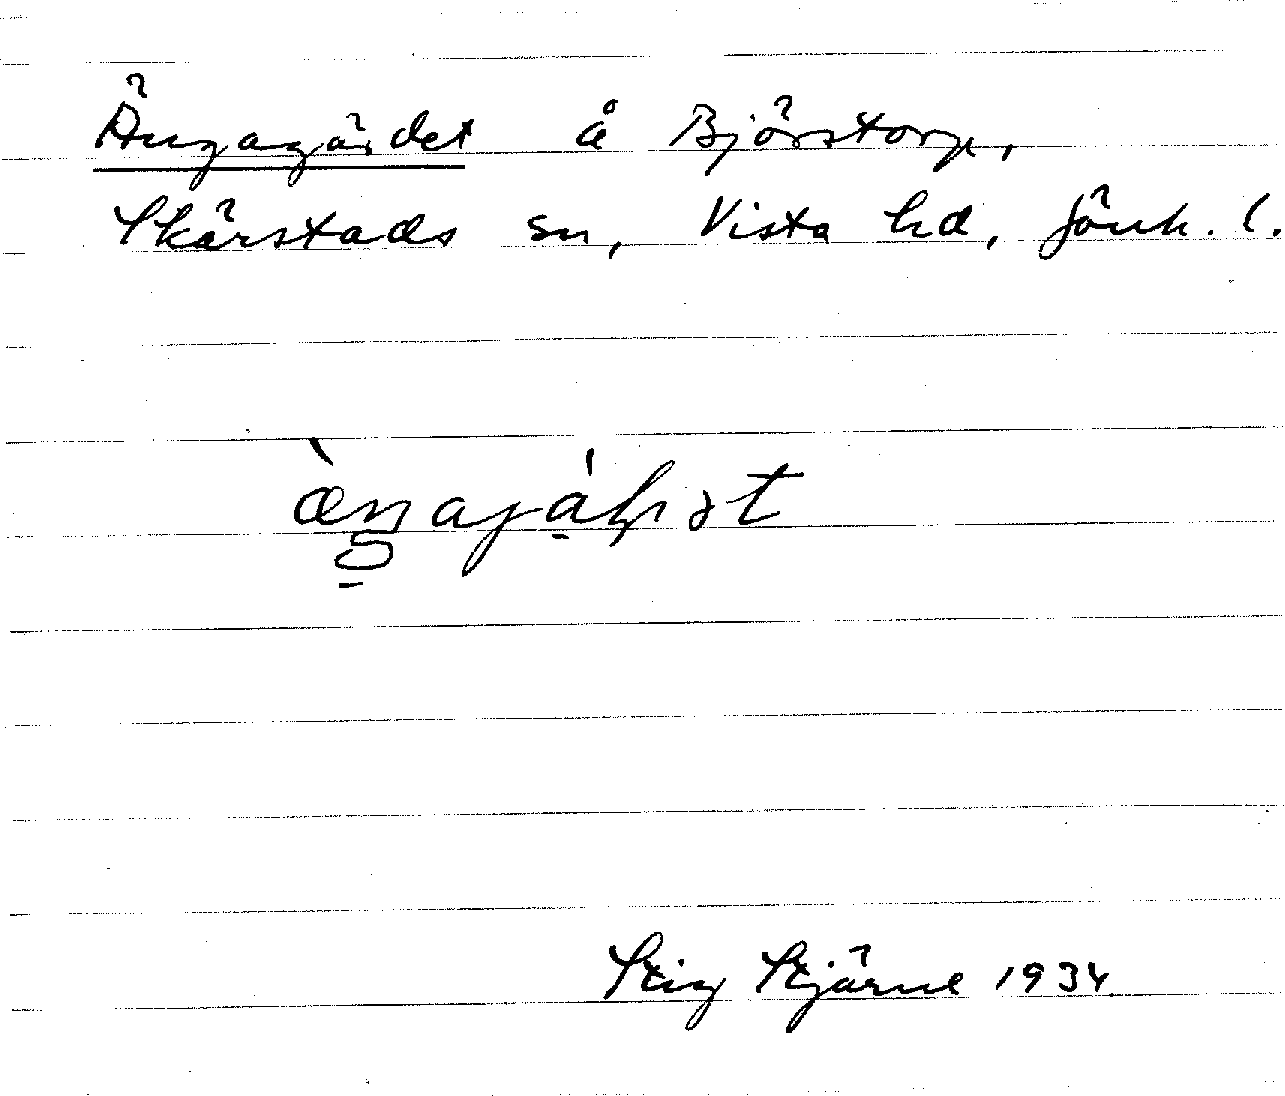 Ängagärdet å Björstorp,
Skärstads sn, Vista hd, Jönk. l.
Stig Stjärne 1934